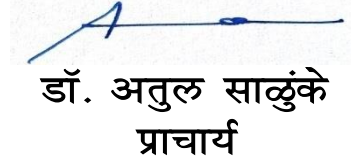 डॉ. अतुल साळुंके
प्राचार्य